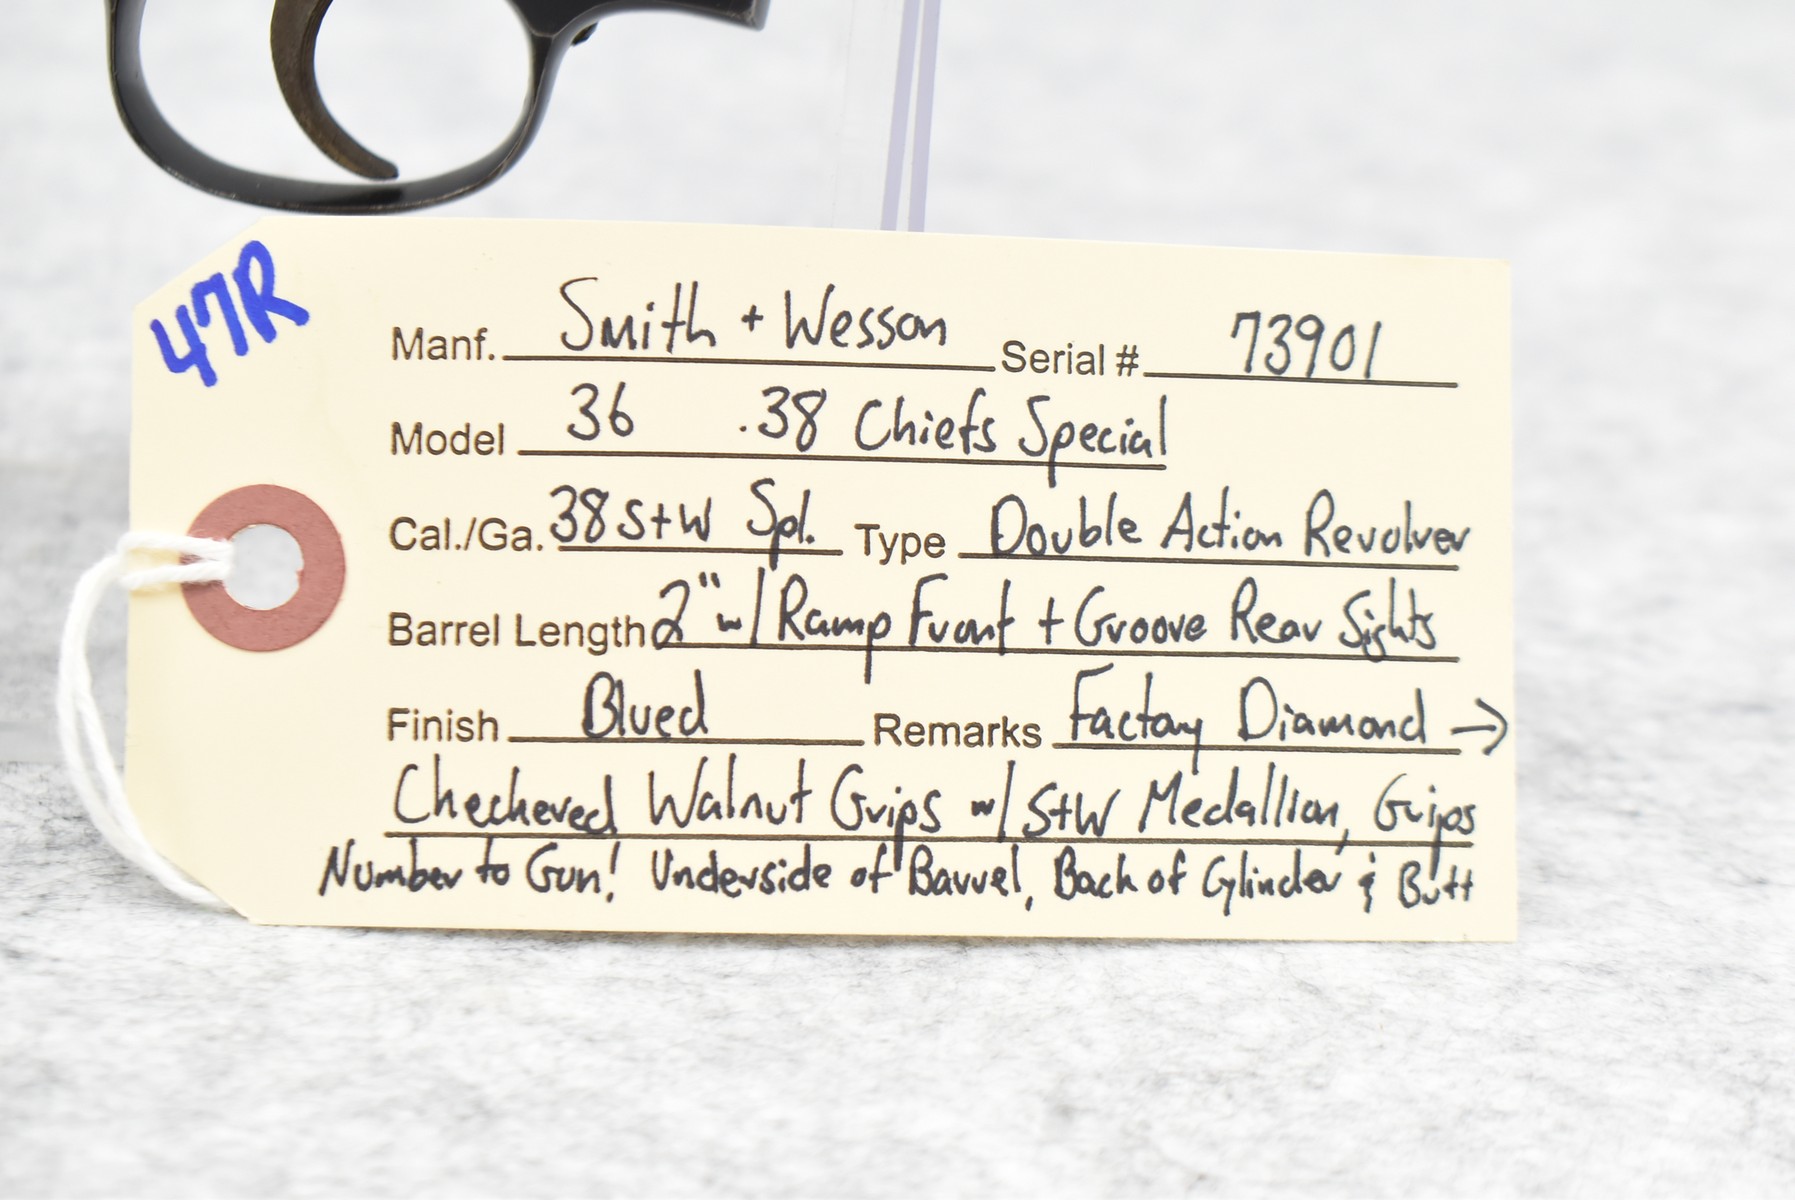 47R
Manf. Smith + Wesson Serial # 73901
Model 36 .38 Chiefs Special
Cal./Ga. 38 S+W Spl. Type Double Action Revolver
Barrel Length 2" w/ Ramp Front + Groove Rear Sights
Finish Blued Remarks Factory Diamond →
Checkered Walnut Grips w/ S+W Medallion, Grips
Number to Gun! Underside of Barrel, Back of Cylinder & Butt